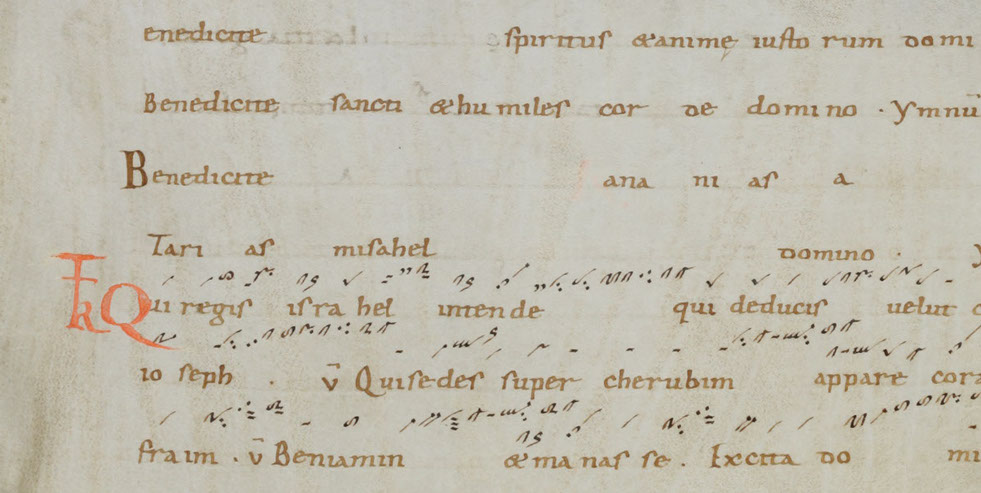 enedicite spiritus & anime iusto rum domi
Benedicite sancti & hu miles cor de domino · Ymnū
Benedicite ana ni as a
Tari as misahel domino ·
TR Qui regis isra hel intende qui deducis uelut
io seph · v̄ Qui sedes super cherubim appare corā
fraim · v̄ Beniamin & ma nas se · Excita do mi